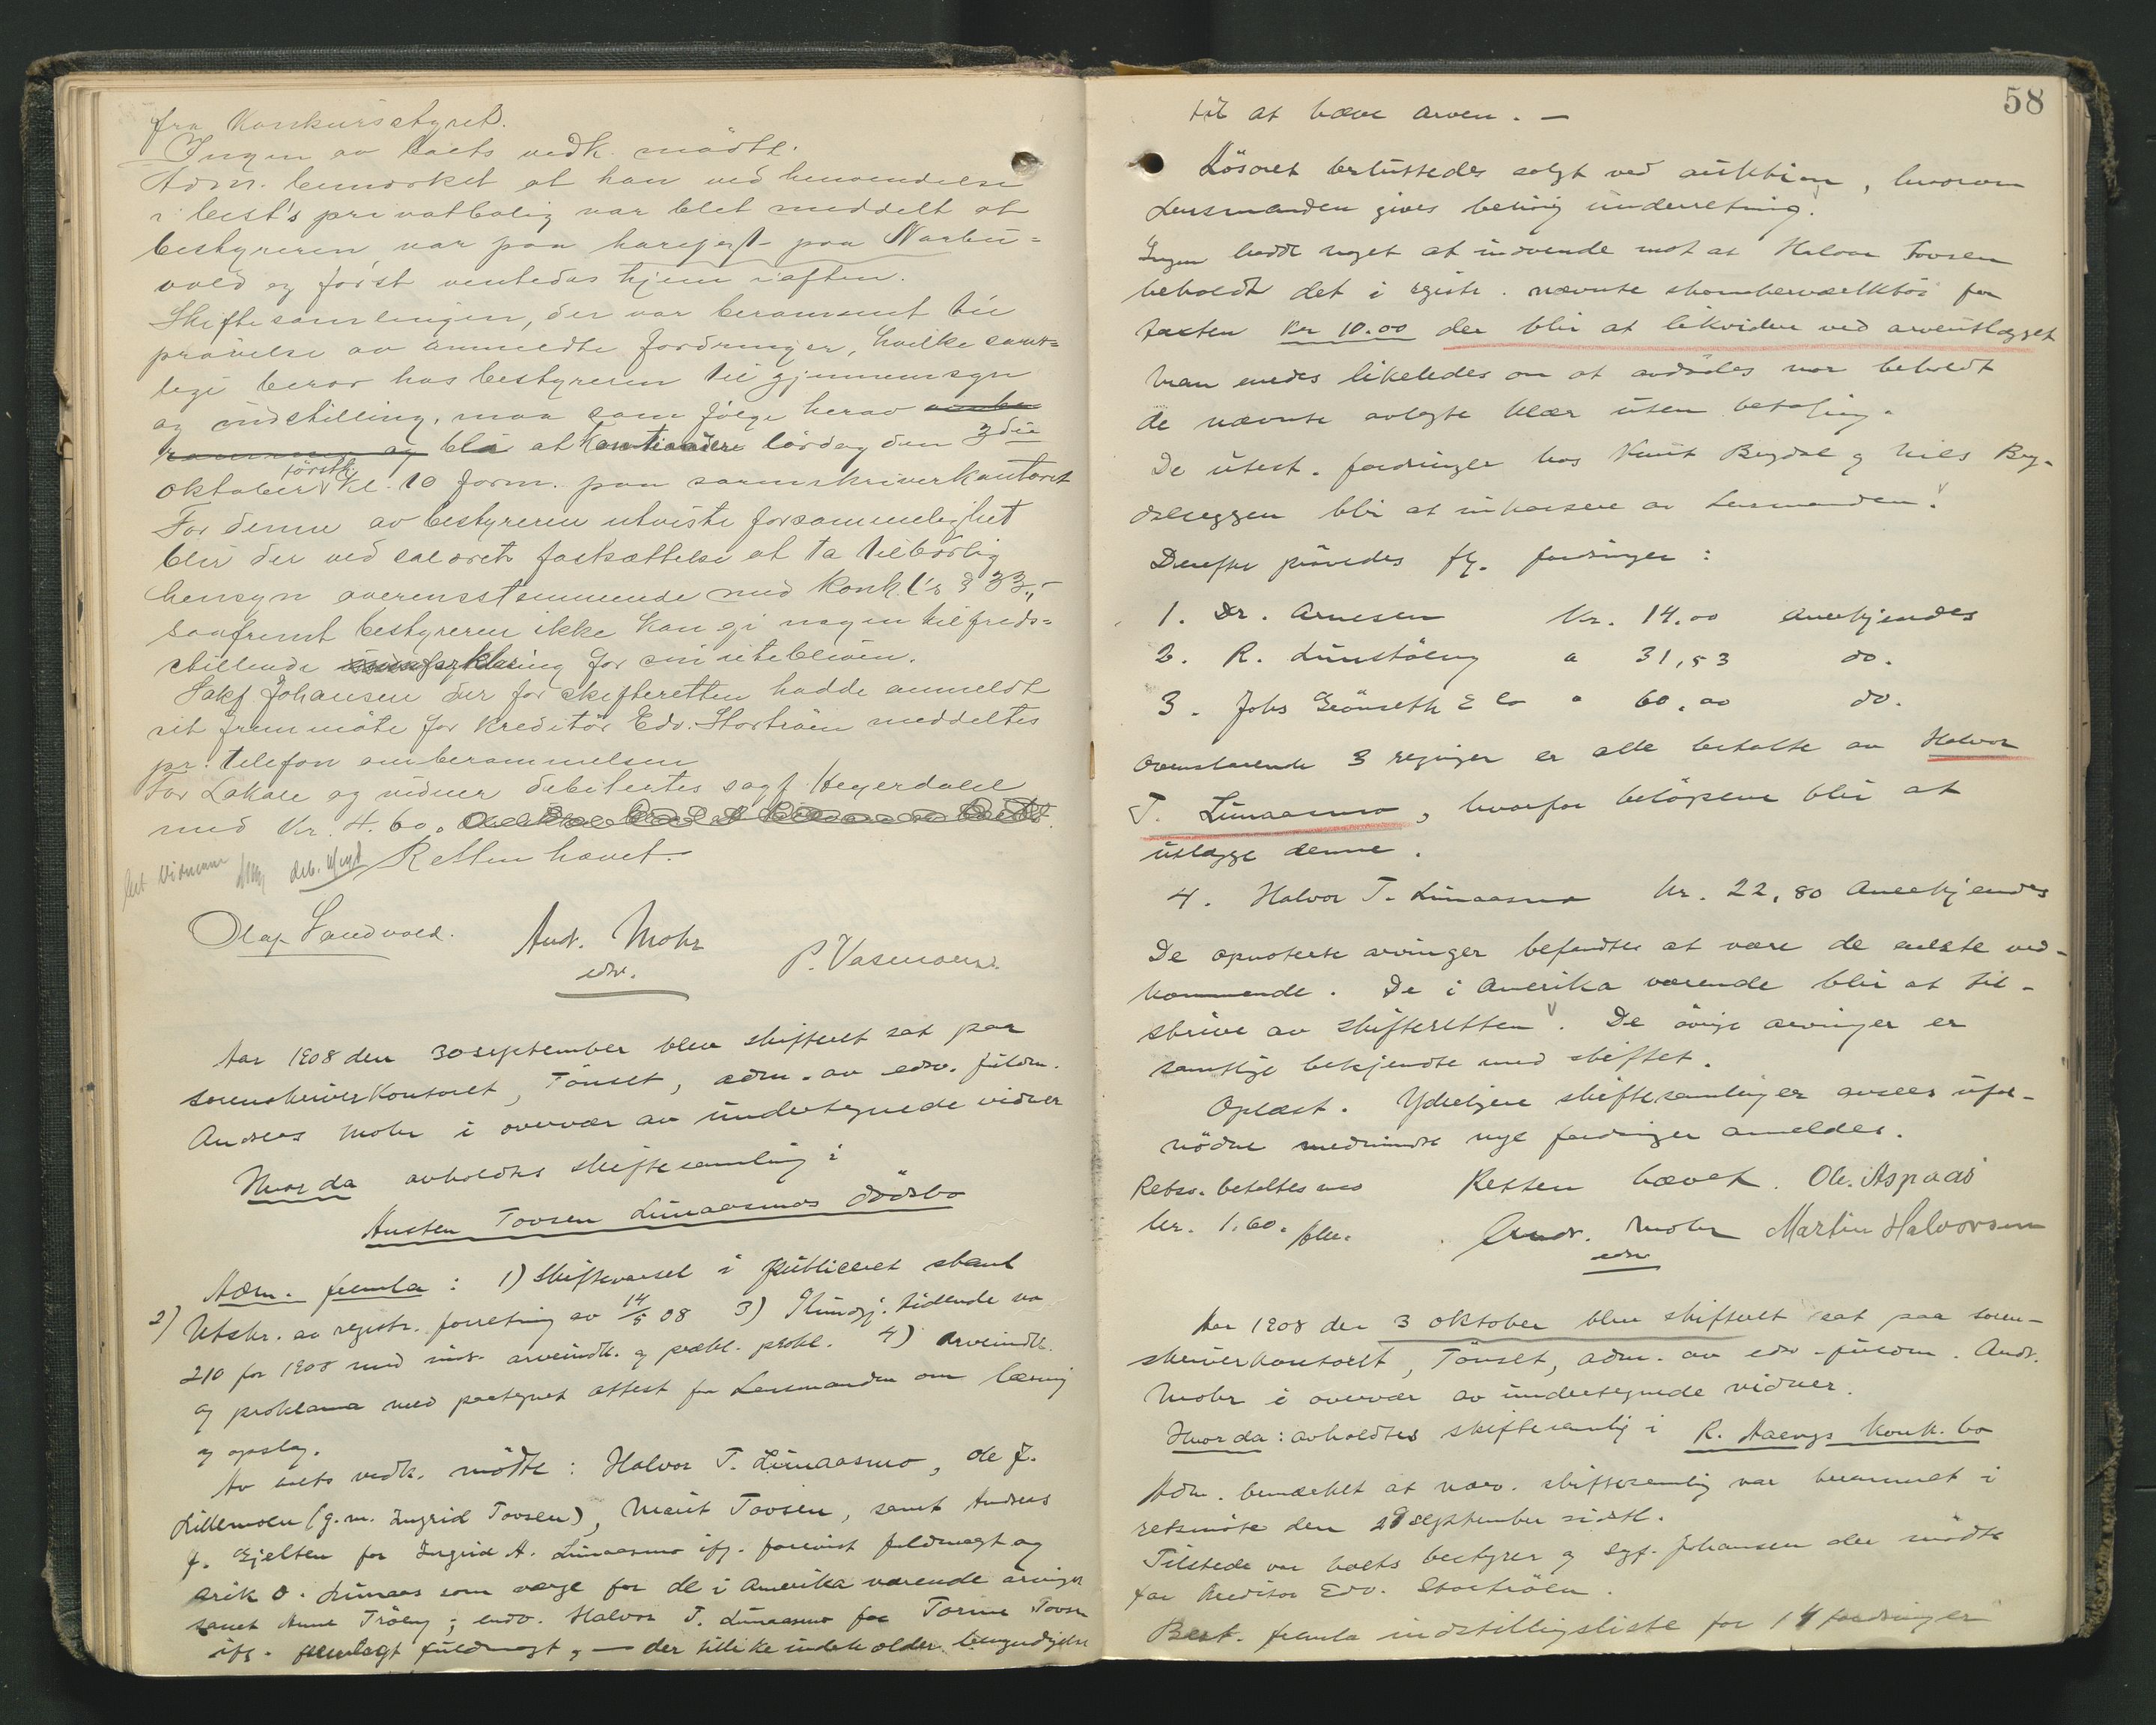 fra Konkursstyret.
Ingen av boets vedk. mödte.
Adm. bemerket at han ved henvendelse
i best's privatbolig var blet meddelt at
bestyreren var paa harejagt paa Narbu=
vold og först ventedes hjem iaften.
Skiftesamlingen, der var berammet til
prövelse av anmeldte fordringer, hvilke samt=
lige beror hos bestyreren til gjennemsyn
og indstilling, maa som fölge herav
bli at kontinuere lördag den 3die
oktober förstk. kl. 10 form. paa sorenskriverkontoret
For denne av bestyreren utviste forsømmelighet
blir der ved salærets fastsættelse at ta tilbörlig
hensyn overensstemmende med konk.l's § 33,-
saafremt bestyreren ikke kan gi nogen tilfreds=
stillende forklaring for sin utebliven.
Sakf. Johansen der for skifteretten hadde anmeldt
sit fremmöte for kreditor Edv. Stortröen meddeltes
pr. telefon omberammelsen
For Lokale og vidner debitertes sagf. Heyerdahl
med Kr. 4.60.
Retten hævet.
deb.
Olaf Sandvold.
Andr. Mohr
edsv.
P. Vasmoen.
Aar 1908 den 30 september blev skifteret sat paa
sorenskriverkontoret, Tönset, adm. av edsv. fuldm.
Andreas Mohr i overvær av undertegnede vidner
Hvorda avholdtes skiftesamling i
Austen Tovsen Lunaasmos dödsbo
Adm. fremla: 1) Skiftevarsel i publiceret stand
2) Utskr. av registr. forretning av 14/5 08 3) Kundgj. tidende no
210 for 1908 med indr. arveindk. og prækl. prokl. 4) Arveindk.
og proklama med paategnet attest fra Lensmanden om læsning
og opslag.
Av boets vedk. mödte: Halvor T. Lunaasmo, Ole J.
Lillemoen (g.m. Ingrid Tovsen), Marit Tovsen, samt Anders
J. Gjelten for Ingrid A. Lunaasmo ifg. forevist fuldmagt og
Erik O. Lunaas som værge for de i Amerika værende arvinger
samt Anne Tröeng; endv. Halvor T. Lunaasmo for Torine Tovsen
ifg. fremlagt fuldmagt, — der tillike indeholder bemyndigelse
58
til at hæve arven. —
Lösöret besluttedes solgt ved auktion, hvorom
Lensmanden gives behörig underretning.
Ingen hadde noget at indvende mot at Halvor Tovsen
beholdt det i registr. nævnte skomakerværktöi for
taksten Kr 10.00 der blir at likvidere ved arveutlægget
Man enedes likeledes om at avdödes mor beholdt
de nævnte avlagte klær uten betaling.
De utest. fordringer hos Knut Brydal og Nils Bry-
dalseggen blir at inkassere av Lensmanden.
Derefter prövedes flg. fordringer:
1. Dr. Arnesen Kr. 14.00 Anerkjendes
2. R. Lunstöeng " 31,53 do.
3. Johs Grönseth & Co " 60.00 do.
Ovenstaaende 3 regninger er alle betalte av Halvor
T. Lunaasmo, hvorfor belöpene blir at
utlægge denne.
4. Halvor T. Lunaasmo Kr. 22,80 Anerkjendes
De opnoterte arvinger befandtes at være de eneste ved-
kommende. De i Amerika værende blir at til-
skrive av skifteretten. De övrige arvinger er
samtlige bekjendte med skiftet.
Oplæst. Yderligere skiftesamlinger ansees ufor-
nödne medmindre nye fordringer anmeldes.
Rettsv. betaltes med Retten hævet. Ole Aspaas
Kr. 1.60. Andr. Mohr Martin Halvorsen
edsv
Aar 1908 den 3 oktober blev skifteret sat paa soren-
skriverkontoret, Tönset, adm. av edsv. fuldm. Andr.
Mohr i overvær av undertegnede vidner.
Hvorda: avholdtes skiftesamling i R. Haengs konk.bo
Adm. bemerket at nærv. skiftesamling var berammet i
retsmöte den 29 september sidstl.
Tilstede var boets bestyrer og sgf. Johansen der mödte
for kreditor Edv. Stortröen.
Best. fremla indstillingsliste for 14 fordringer